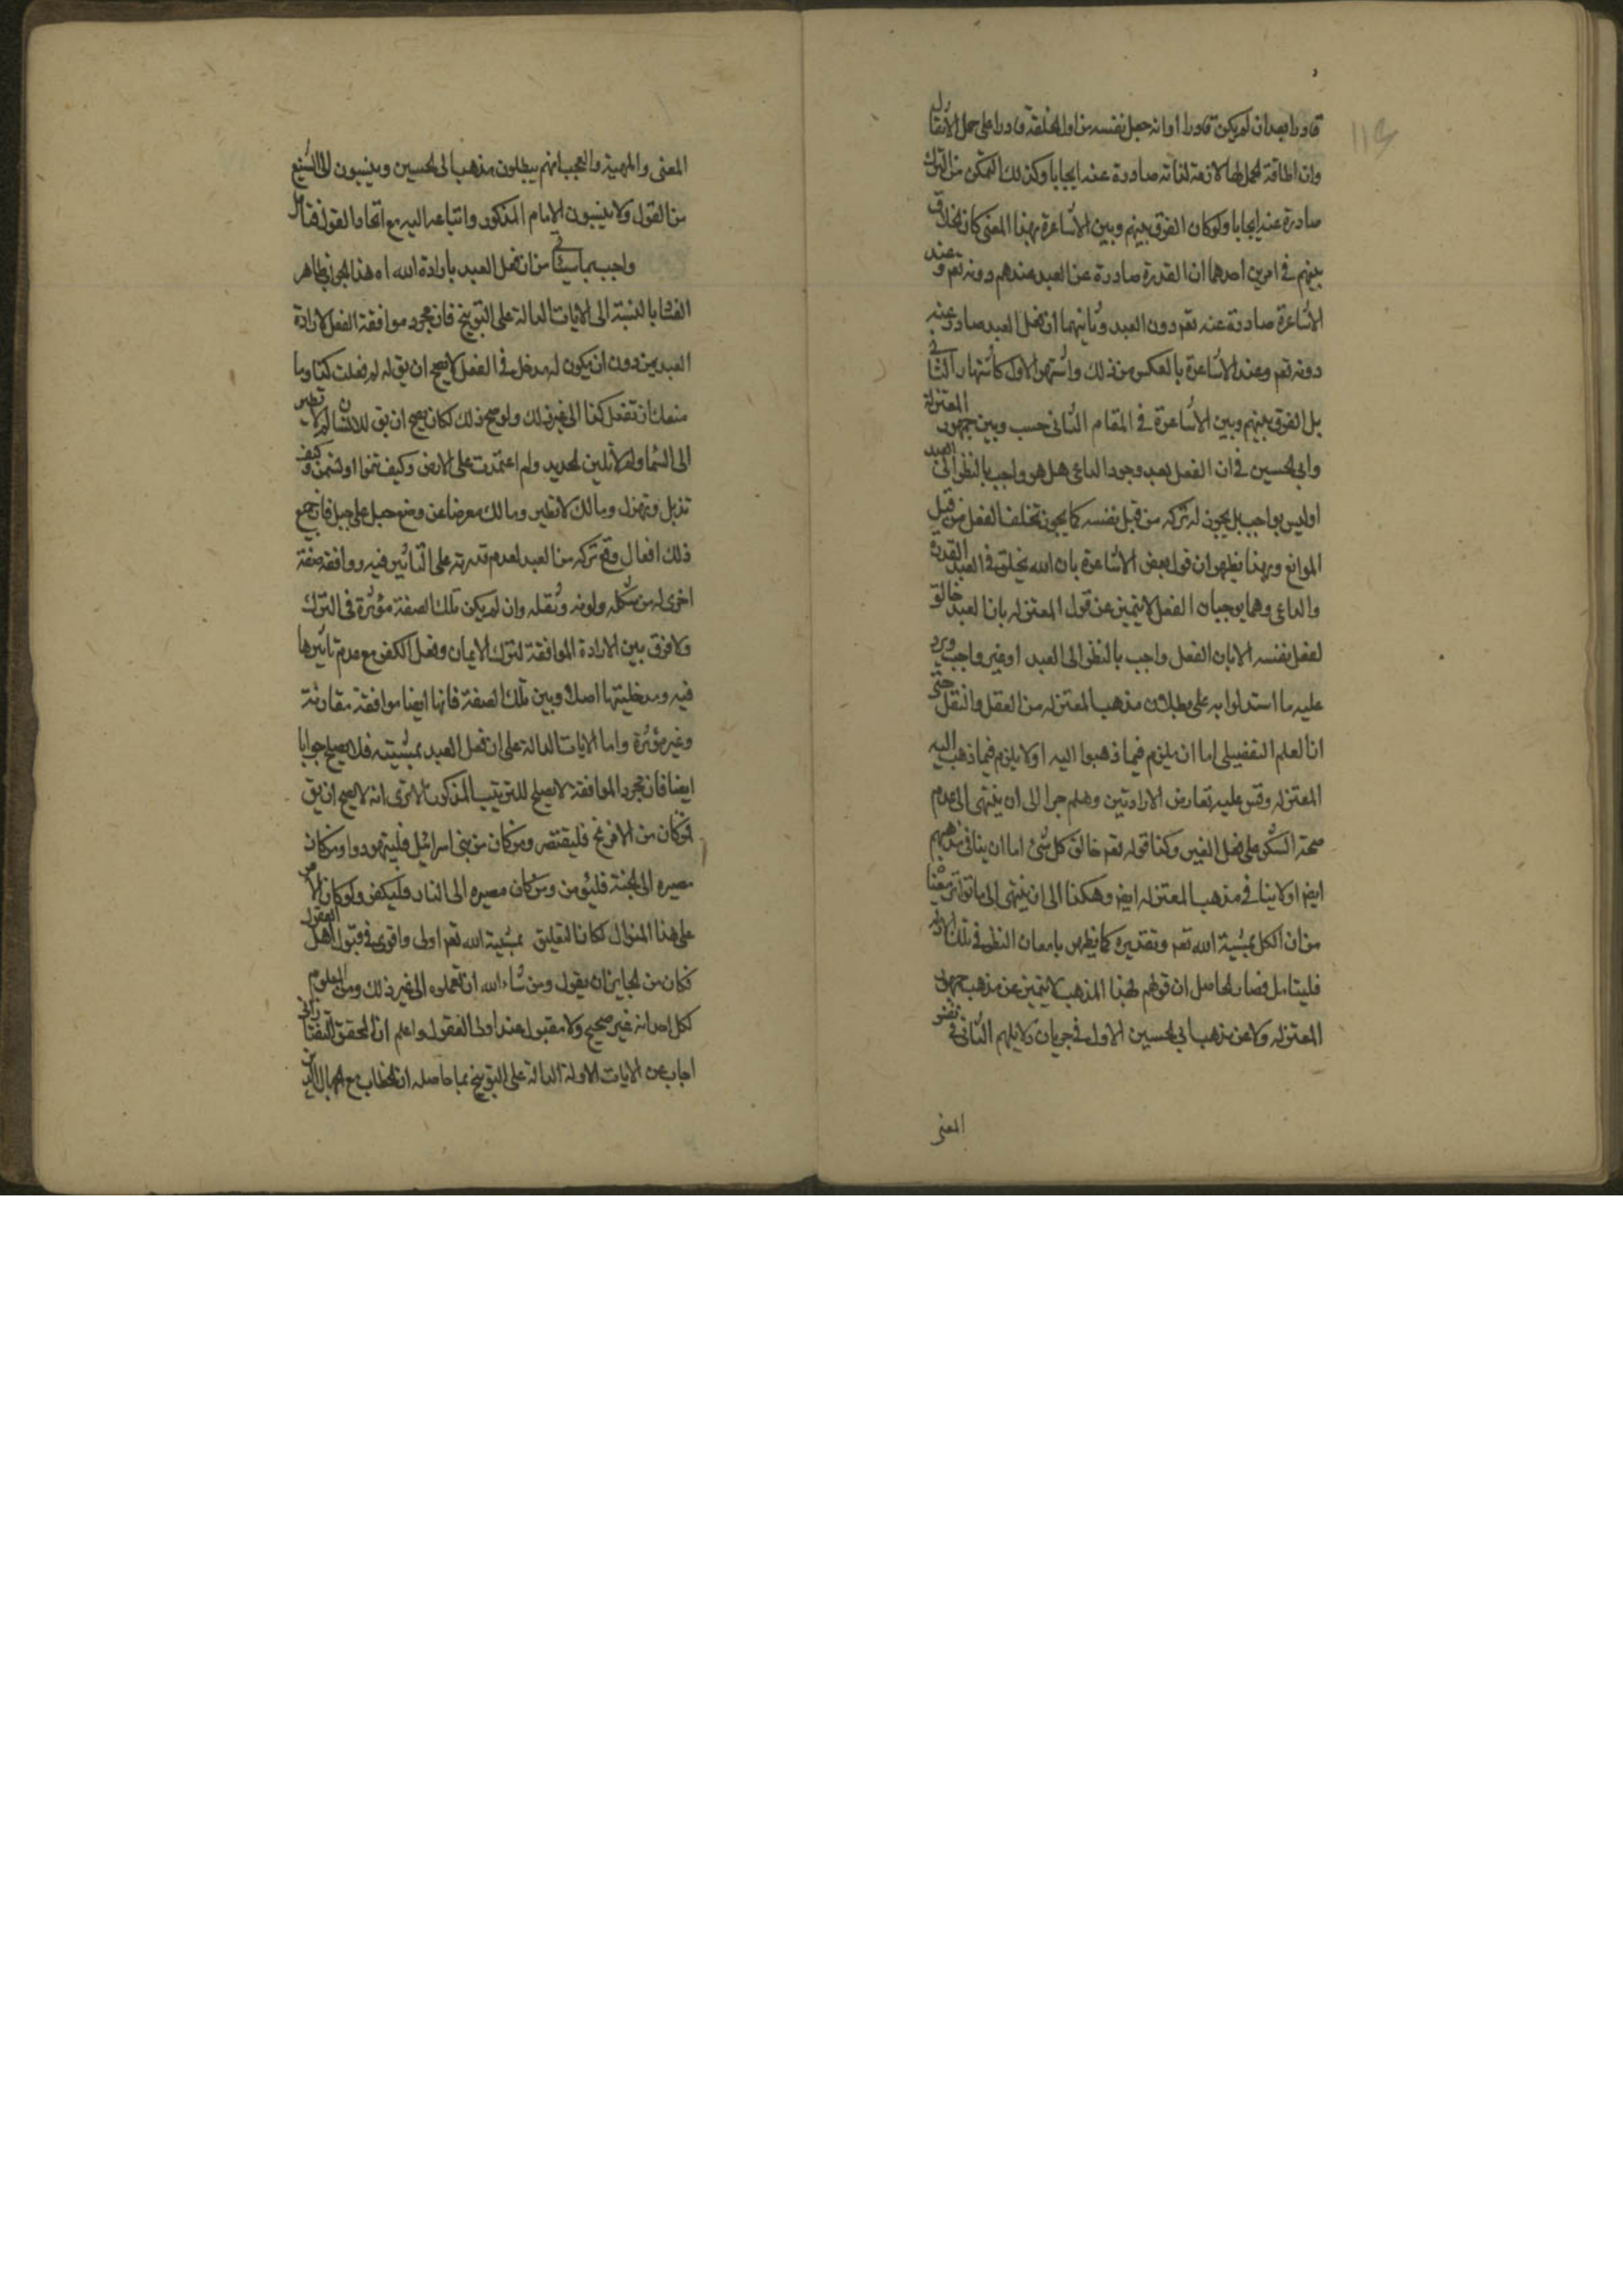 قادرا بعد ان لم يكن قادرا او انه جعل نفسه من اول الخلقة قادرا على حمل الاثقال
وان اطاقة الحمل لها لازمة لذاته صادرة عنه ايجابا وكذلك التمكن من الترك
صادرة عنه ايجابا ولو كان الفرق بينهم وبين الاشاعرة بهذا المعنى كان الخلاف
بينهم في امرين احدهما ان القدرة صادرة عن العبد عندهم دونه تعم وعند
الاشاعرة صادرة عنه تعم دون العبد وثانيهما ان فعل العبد صادر عنه
دونه تعم وعند الاشاعرة بالعكس من ذلك واشتهر الاول كاشتهار الثاني
بل الفرق بينهم وبين الاشاعرة في المقام الثاني حسب وبين جمهور المعتزلة
وابي الحسين في ان الفعل بعد وجود الداعي هل هو واجب بالنظر الى العبد
او ليس بواجب بل يجوز له تركه من قبل نفسه كما يجوز تخلف الفعل من قبل
الموانع وبهذا يظهر ان قول بعض الاشاعرة بان الله يخلق في العبد القدرة
والداعي وهما يوجبان الفعل لا يتميز عن قول المعتزله بان العبد خالق
لفعل نفسه الا بان الفعل واجب بالنظر الى العبد او غير واجب ويرد
عليه ما استدلوا به على بطلان مذهب المعتزله من العقل والنقل حتى
ان العلم التفصيلي اما ان يلزم فيما ذهبوا اليه او لا يلزم فيما ذهب اليه
المعتزله وقس عليه تعارض الارادتين وهلم جرا الى ان ينتهى الى عدم
صحة الشكر على فعل الغير وكذا قوله تعم خالق كل شئ اما ان ينافي مذهبهم
ايضا او لا ينافي مذهب المعتزله ايضا وهكذا الى ان ينتهى الى ما تواتر معنا
من ان الكل بمشية الله تعم وتقديره كما يظهر بامعان النظر في تلك الادلة
فليتامل فصار الحاصل ان قولهم لهذا المذهب لا يتميز عن مذهب جمهور
المعتزله ولا عن مذهب ابي الحسين الاول في جريان دلايلهم الثاني في نفس
المعنى
المعنى والمهية والعجب انهم يبطلون مذهب ابي الحسين وينسبون الى الشنيع
من القول ولا ينسبون الامام المذكور واتباعه اليه مع اتحاد القول فتامل
واجيب بما سياتي من ان فعل العبد بارادة الله اه هذا الجواب ظاهر
الفساد بالنسبة الى الايات الدالة على التوبيخ فان مجرد موافقة الفعل لارادة
العبد من دون ان يكون له مدخل في الفعل لا يصح ان يق له لم فعلت كذا وما
منعك ان تفعل كذا الى غير ذلك ولو صح ذلك لكان يصح ان يق للانسان لم لا تطير
الى السما ولم لا تلين الحديد ولم اعتمدت على الارض وكيف تنموا او تسمن وكيف
تذبل وتهزل وما لك لا تطير وما لك معرضا عن وضع جبل على جبل فان جميع
ذلك افعال وقع تركه من العبد لعدم قدرته على التاثير فيه ووافقه صفة
اخرى له من شكله ولونه وثقله وان لم يكن تلك الصفة مؤثرة في الترك
ولا فرق بين الارادة الموافقة لترك الايمان وفعل الكفر مع عدم تاثيرها
فيه ومدخليتها اصلا وبين تلك الصفة فانها ايضا موافقة مقارنة
وغير مؤثرة واما الايات الدالة على ان فعل العبد بمشيته فلا يصلح جوابا
ايضا فان مجرد الموافقة لا يصلح للترتيب المذكور الا ترى انه لا يصح ان يق
من كان من الافرنج فليتنصر ومن كان من بني اسرائيل فليتهودوا ومن كان
مصيره الى الجنة فليؤمن ومن كان مصيره الى النار فليكفر ولو كان الامر
على هذا المنوال لكان التعليق بمشية الله تعم اولى واقوى في قبول اهل العقول
فكان من الجايز ان يقول ومن شاء الله ان تعملوه الى غير ذلك ومن المعلوم
لكل احد انه غير صحيح ولا مقبول عند اولى العقول واعلم ان المحقق التفتازاني
اجاب عن الايات الاولة الدالة على التوبيخ بما حاصله ان الخطاب مع الجهال الذين